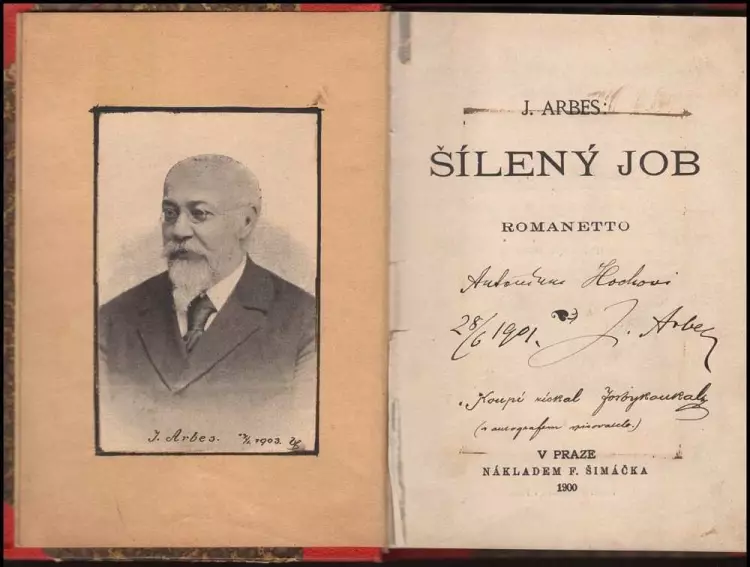 J. Arbes. 1903.
J. ARBES:
ŠÍLENÝ JOB
ROMANETTO
Antonínu Hochovi
28/6 1901. J. Arbes
Koupí získal
(s autografem spisovatele.)
V PRAZE
NÁKLADEM F. ŠIMÁČKA
1900